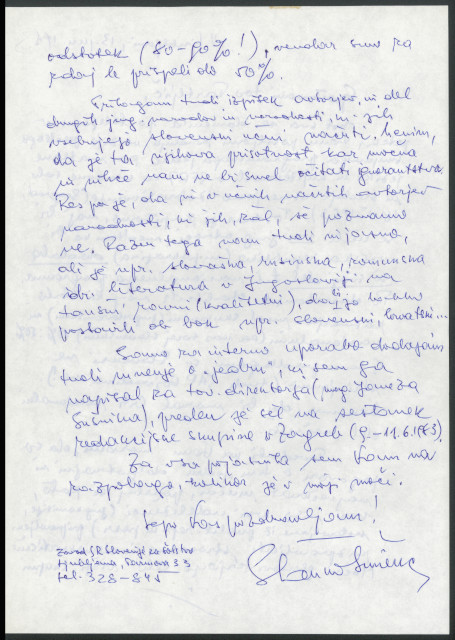 odstotek (80-90%!), vendar smo za
zdaj le prispeli do 50%.
Prilagam tudi izpisek avtorjev, in del
drugih jug. narodov in narodnosti, ki jih
vsebujejo slovenski učni načrti. Menim,
da je ta njihova prisotnost kar močna
in nihče nam ne bi smel očitati ignorantstva.
Res pa je, da ni v učnih načrtih avtorjev
narodnosti, ki jih, žal, še poznamo
ne. Razen tega nam tudi ni jasno,
ali je npr. slovaška, rusinska, romunska
idr. literatura v Jugoslaviji na
takšni ravni (kvalitetni), da jo lahko
postavili ob bok npr. slovenski, hrvaški...
Samo za interno uporabo dodajam
tudi mnenje o "jedrih", ki sem ga
napisal za tov. direktorja (mag. Janeza
Sušnika), preden je šel na sestanek
redakcijske skupine v Zagreb (9.-11.6.1983).
Za vsa pojasnila sem Vam na
razpolago, kolikor je v moji moči.
Lepo Vas pozdravljam!
Zavod SR Slovenije za šolstvo
Ljubljana, 33
tel. 328-845